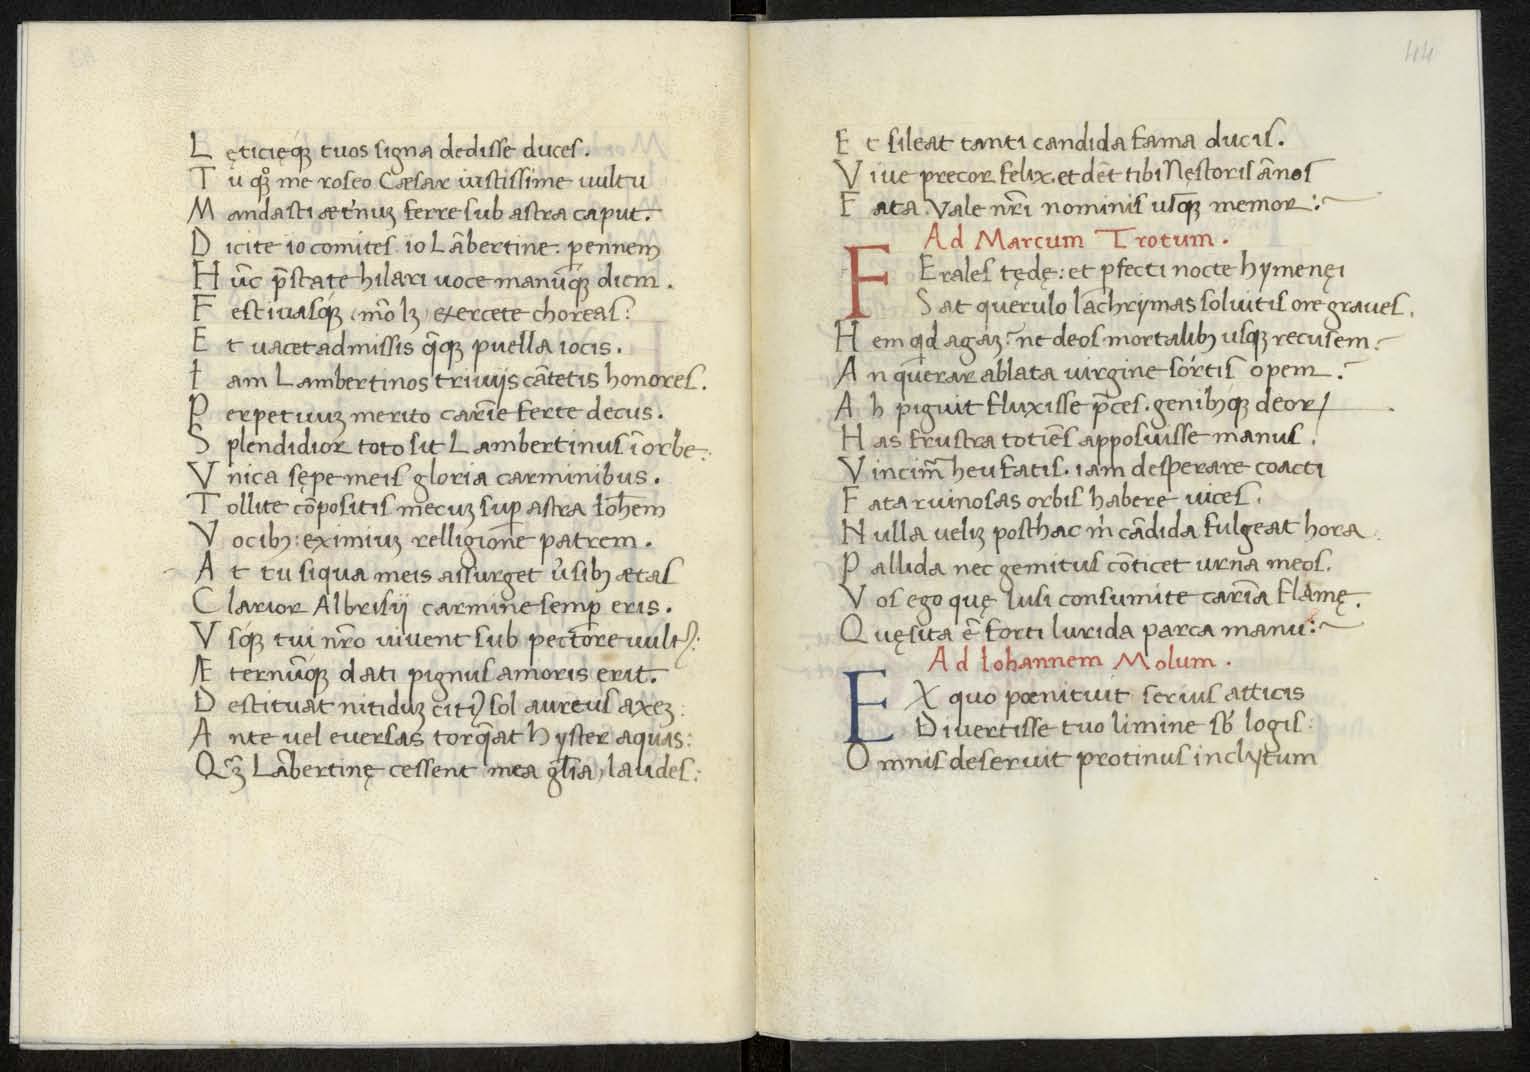 L ęticięq́ꝫ tuos signa dedisse duces.
T u qͦꝫ me roseo Cæsar iustissime uultu
M andasti æt'nuꝫ ferre sub astra caput.
D icite io comites. io Lābertine. pennem
H ūc p̄state hilari uoce manūq́ꝫ diem.
F estiuasq́ꝫ, mō lꝫ, exercete choreas:
E t uacet admissis q̄qꝫ puella iocis.
I am Lambertinos triuijs cātetis honores.
P erpetuuꝫ merito carīe ferte decus.
S plendidior toto sit Lambertinus ī orbe:
V nica sępe meis gloria carminibus.
T ollite cōpositis mecuꝫ suꝑ astra Ioh̄em
V ocibꝫ: eximiuꝫ relligione patrem.
A t tu siqua meis assurget u'sibꝫ ætas
C larior Albrisij carmine semꝑ eris.
V sq́ꝫ tui nr̄o uiuent sub pectore uultꝰ:
Æ ternūqꝫ dati pignus amoris erit.
D estituat nitiduꝫ citiꝰ sol aureus axeꝫ:
A nte uel euersas torq̄at hyster aquas:
Q ꝫ̄ Lābertinę cessent mea gl̄ia, laudes:
44
E t sileat tanti candida fama ducis.
V iue precor felix. et dēt tibi Nęstoris ānos
F ata. Vale nr̄i nominis usq̄ꝫ memor:~
Ad Marcum Trotum.
F Erales tędę: et ꝑfecti nocte hymenęi
S at querulo lachrymas soluitis ore graues.
H em qͥd agaꝫ? ne deos mortalibꝫ usqꝫ recusem?
A n querar ablata uirgine sortis opem?
A h piguit fluxisse p̄ces. genibꝫqꝫ deoꝝ
H as frustra totiēs apposuisse manus.
V incim̄ heu fatis. iam desperare coacti
F ata ruinosas orbis habere uices.
N ulla uelꝫ posthac m̓ cādida fulgeat hora.
P allida nec gemitus cōticet urna meos.
V os ego quę lusi consumite carīa flāmę.
Q uęsita ē forti lurida parca manu:~
Ad Iohannem Molum.
E X quo pœnituit serius atticis
D iuertisse tuo limine sb̓ logis:
O mnis deseruit protinus inclytum